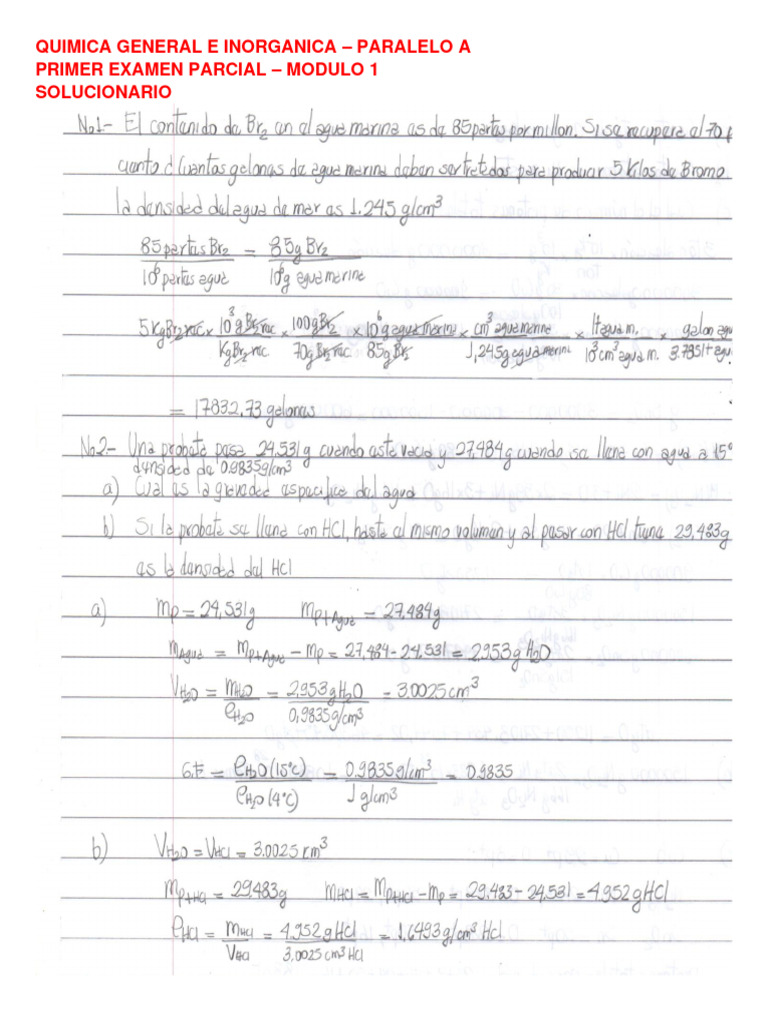 QUIMICA GENERAL E INORGANICA – PARALELO A
PRIMER EXAMEN PARCIAL – MODULO 1
SOLUCIONARIO
No1.- El contenido de Br₂ en el agua marina es de 85 partes por millon. Si se recupera el 70
cuanto ¿Cuantos galones de agua marina deben ser tratados para producir 5 kilos de Bromo
la densidad del agua de mar es 1.245 g/cm³
85 partes Br₂ / 10⁶ partes agua = 85g Br₂ / 10⁶g agua marina
5KgBr₂rec × 10³gBr₂rec / KgBr₂rec × 100gBr₂ / 70gBr₂rec × 10⁶g agua marina / 85gBr₂ × cm³ agua marina / 1,245g agua marina × 1lt agua m. / 10³cm³ agua m. × galon agu / 3.785lt agu
= 17832,73 galones
No2.- Una probeta pesa 24,531g cuando esta vacia y 27,484g cuando se llena con agua a 15°
densidad de 0.9835g/cm³
a) Cual es la gravedad especifica del agua
b) Si la probeta se llena con HCl, hasta el mismo volumen y al pesar con HCl tiene 29.483g
es la densidad del HCl
a) mp = 24,531g mp+Agua = 27,484g
mAgua = mp+Agua – mp = 27,484 - 24.531 = 2,953g H₂O
VH₂O = mH₂O / ρH₂O = 2,953g H₂O / 0,9835g/cm³ = 3.0025cm³
G.E = ρH₂O(15°C) / ρH₂O(4°C) = 0.9835g/cm³ / 1g/cm³ = 0.9835
b) VH₂O = VHCl = 3.0025cm³
mp+HCl = 29.483g mHCl = mp+HCl – mp = 29.483 - 24.531 = 4.952gHCl
ρHCl = mHCl / VHCl = 4,952gHCl / 3.0025cm³HCl = 1.6493g/cm³ HCl.